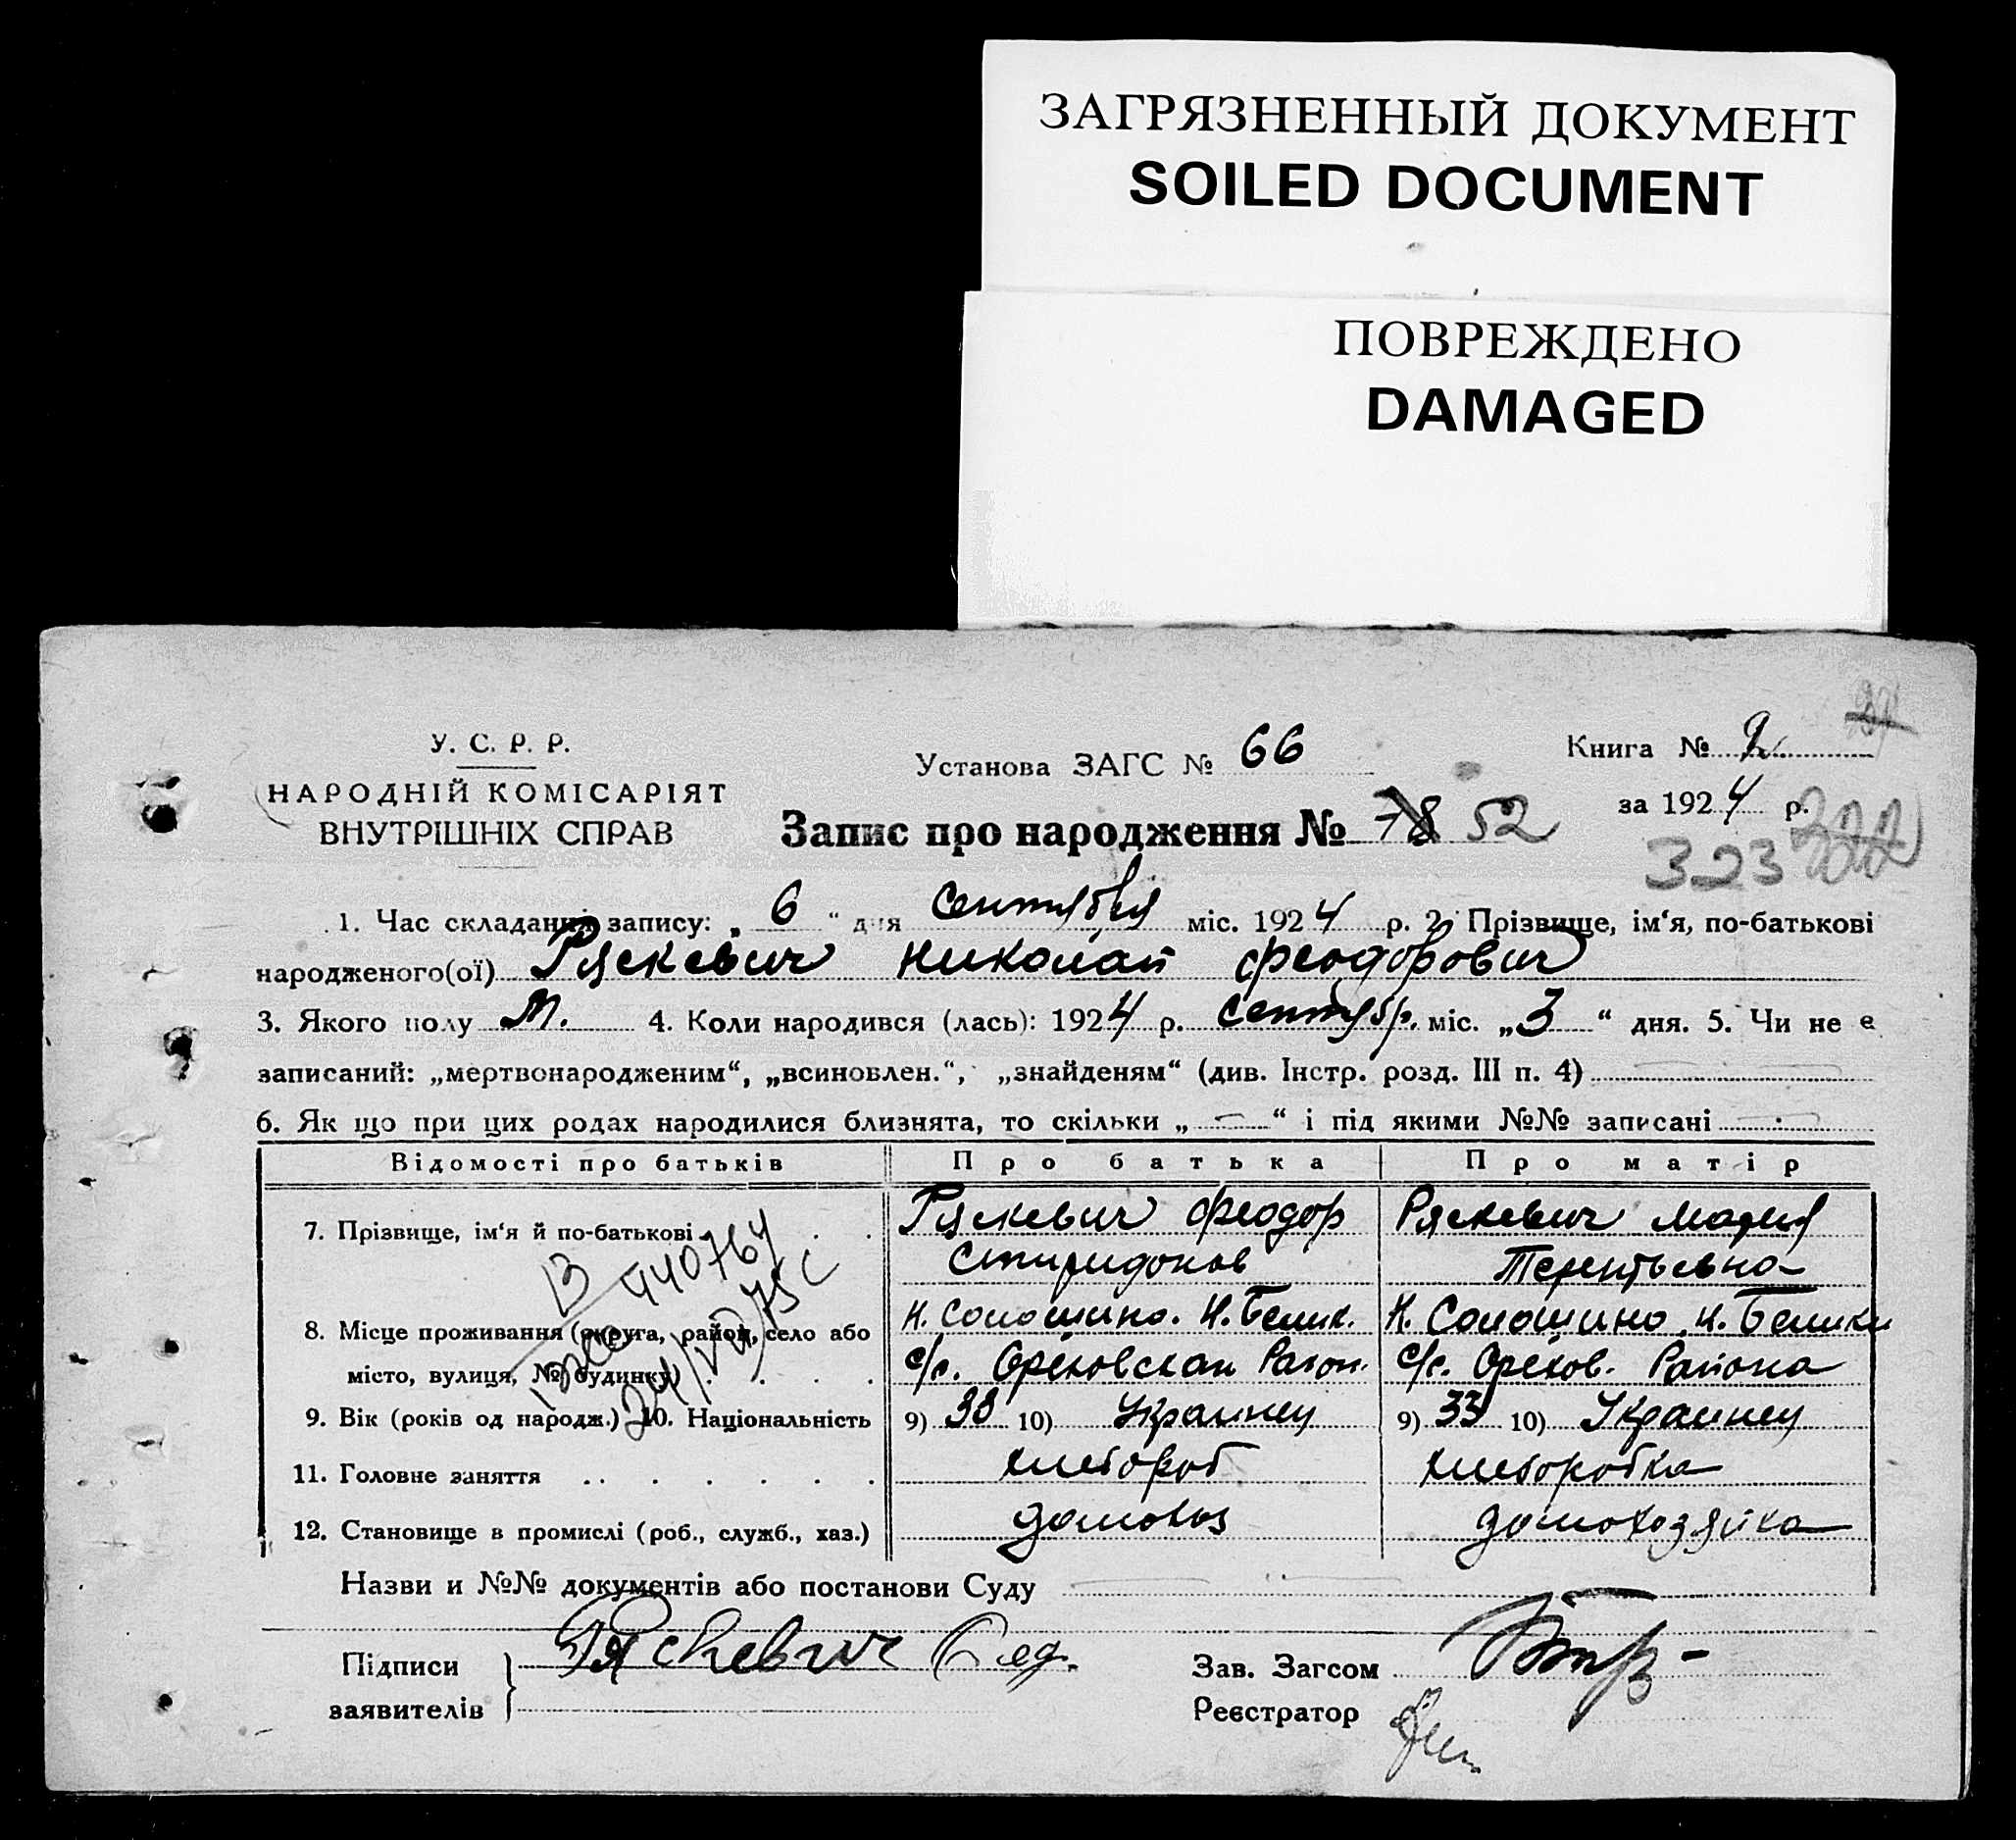 ЗАГРЯЗНЕННЫЙ ДОКУМЕНТ
SOILED DOCUMENT
ПОВРЕЖДЕНО
DAMAGED
У. С. Р. Р.
НАРОДНІЙ КОМІСАРІЯТ
ВНУТРІШНІХ СПРАВ
Установа ЗАГС № 66
Книга № 2
за 1924 р.
Запис про народження № 78 52
323
1. Час складання запису: „ 6 “ дня Сентября міс. 1924 р. 2. Прізвище, ім‘я, по-батькові
народженого(ої) Ряскевич Николай Феодорович
3. Якого полу М. 4. Коли народився (лась): 1924 р. Сентябр. міс. „3“ дня. 5. Чи не е
записаний: „мертвонародженим“, „всиновлен.“, „знайденям“ (див. Інстр. розд. III п. 4)
6. Як що при цих родах народилися близнята, то скільки „ — “ і під якими №№ записані
Відомості про батьків Про батька Про матір
7. Прізвище, ім‘я й по-батькові Ряскевич Феодор Ряскевич Мария
Спиридонов Терентьевна
8. Місце проживання (округа, район, село або Н. Солошино. Н. Белик. Н. Солошино. Н. Белики
місто, вулиця, № будинку) с/с. Ореховскаи Раион. с/с. Орехов. Района
9. Вік (років од народж.) 10. Національність 9) 38 10) Украинец 9) 33 10) Украинец
11. Головне заняття хлебороб хлеборобка
12. Становище в промислі (роб., служб., хаз.) домохоз домохозяйка
440764
Назви и №№ документів або постанови Суду
Підписи Ряскевич Фед. Зав. Загсом
заявителів Реєстратор